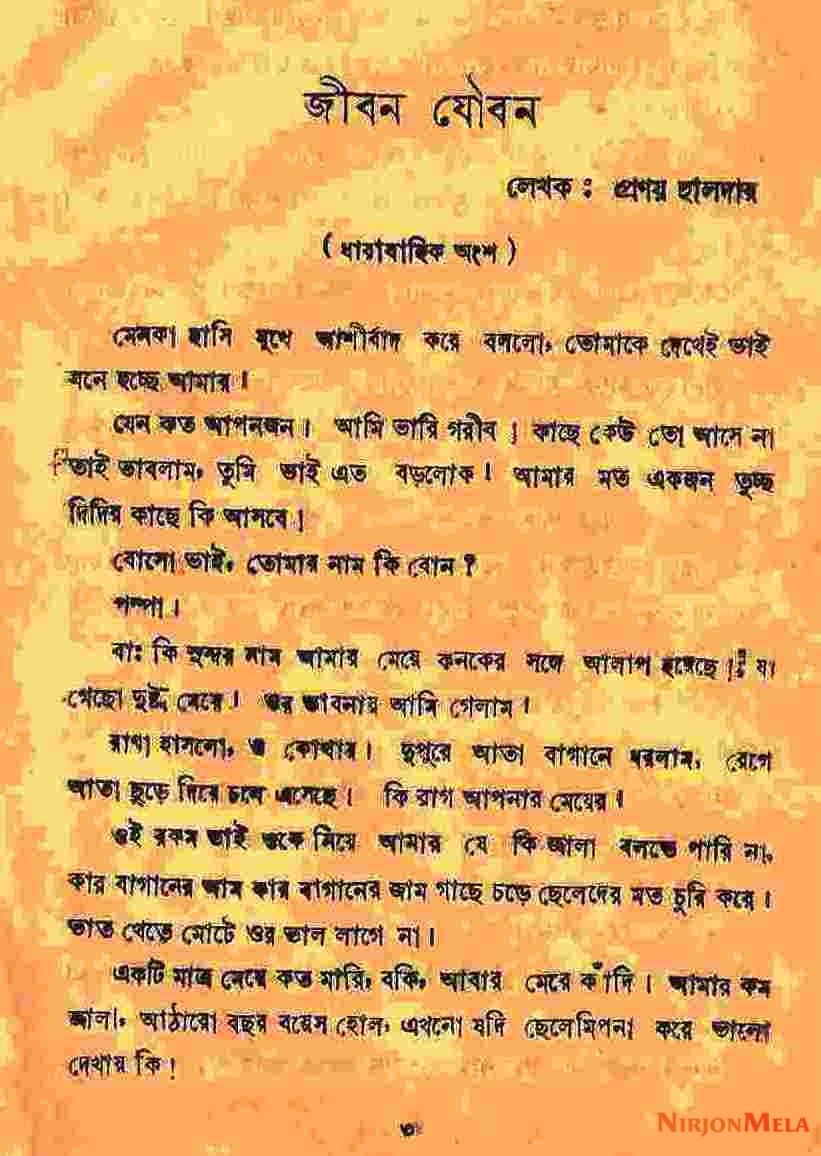 জীবন যৌবন
লেখক : প্রণয় হালদার
( ধারাবাহিক অংশ )
মেনকা হাসি মুখে আশীর্বাদ করে বললো, তোমাকে দেখেই ভাই
মনে হচ্ছে আমার ।
যেন কত আপনজন । আমি ভারি গরীব । কাছে কেউ তো আসে না
তাই ভাবলাম, তুমি ভাই এত বড়লোক । আমার মত একজন তুচ্ছ
দিদির কাছে কি আসবে ।
বোলো ভাই, তোমার নাম কি বোন ?
পম্পা ।
বাঃ কি সুন্দর নাম আমার মেয়ে কনকের সঙ্গে আলাপ হয়েছে । যা
গেছো দুষ্টু মেয়ে । ওর ভাবনায় আমি গেলাম ।
রাধা হাসলো, ও কোথায় । দুপুরে আতা বাগানে ধরলাম, রেগে
আতা ছুড়ে দিয়ে চলে এসেছে । কি রাগ আপনার মেয়ের ।
ওই রকম ভাই ওকে নিয়ে আমার যে কি জালা বলতে পারি না,
কার বাগানের আম কার বাগানের জাম গাছে চড়ে ছেলেদের মত চুরি করে ।
ভাত খেতে মোটে ওর ভাল লাগে না ।
একটি মাত্র মেয়ে কত মারি, বকি, আবার মেরে কাঁদি । আমার কম
জালা, আঠারো বছর বয়েস হোল, এখনো যদি ছেলেমিপনা করে ভালো
দেখায় কি !
৩
NIRJONMELA